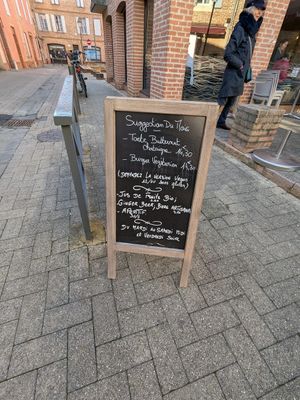 Suggestion Du Mois
- Tarte Butternut
châtaigne 14,50
- Burger Végétarien
(Demandez la version Vegan
et/ou sans gluten)
- Jus de fruits Bio,
Ginger Beer, Bière Artisanale
- Apéritif
Du Mardi au Samedi Midi
et Vendredi Soir